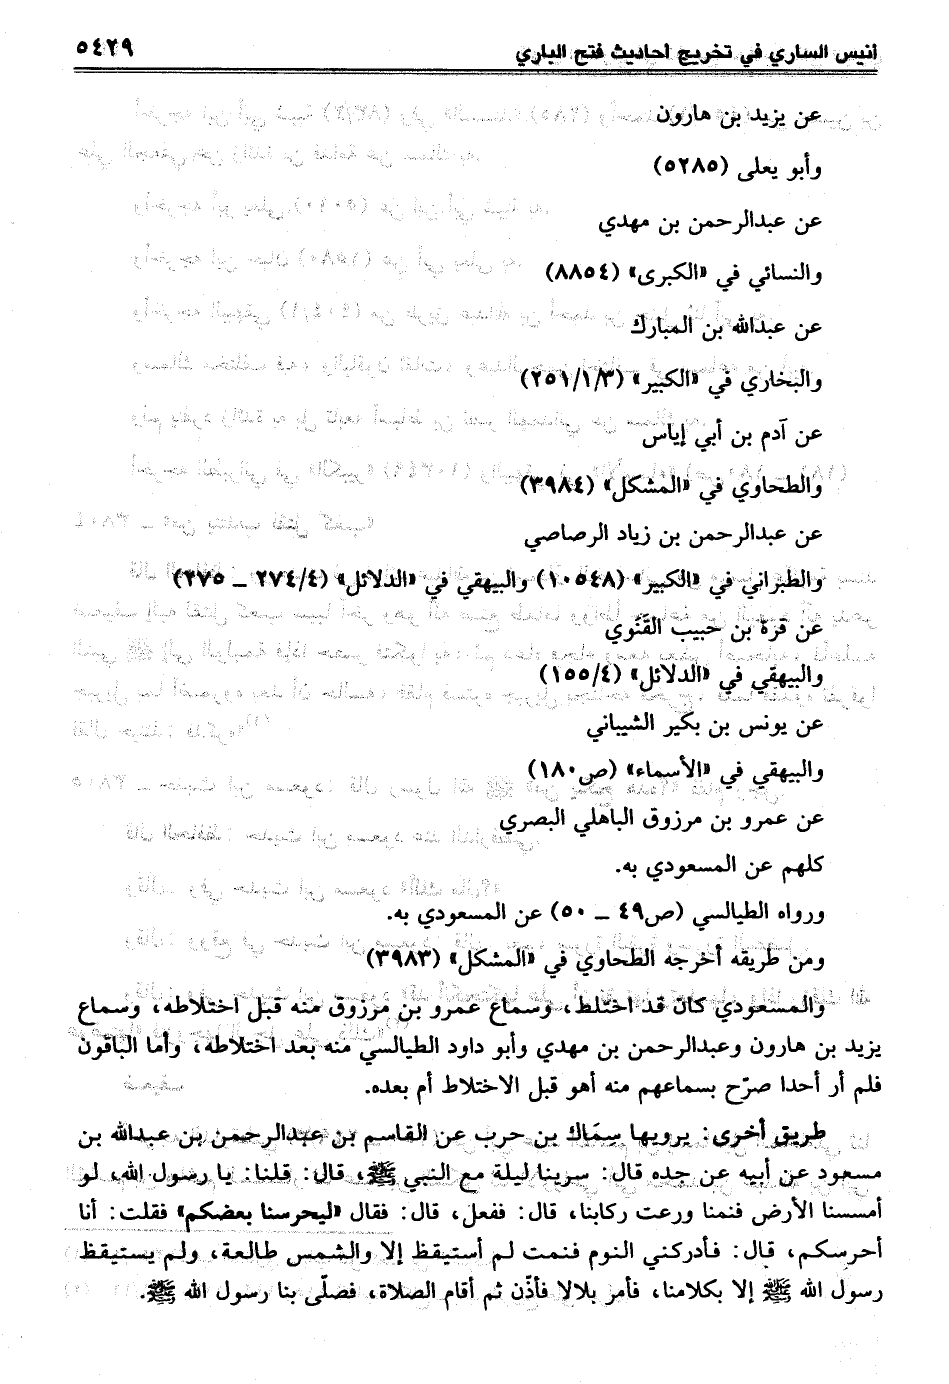 أنيس الساري في تخريج أحاديث فتح الباري ٥٤٢٩
عن يزيد بن هارون
وأبو يعلى (٥٢٨٥)
عن عبدالرحمن بن مهدي
والنسائي في «الكبرى» (٨٨٥٤)
عن عبدالله بن المبارك
والبخاري في «الكبير» (٢٥١/١/٣)
عن آدم بن أبي إياس
والطحاوي في «المشكل» (٣٩٨٤)
عن عبدالرحمن بن زياد الرصاصي
والطبراني في «الكبير» (١٠٥٤٨) والبيهقي في «الدلائل» (٢٧٤/٤ ــ ٢٧٥)
عن قرة بن حبيب القَنَوي
والبيهقي في «الدلائل» (١٥٥/٤)
عن يونس بن بكير الشيباني
والبيهقي في «الأسماء» (ص١٨٠)
عن عمرو بن مرزوق الباهلي البصري
كلهم عن المسعودي به.
ورواه الطيالسي (ص٤٩ ــ ٥٠) عن المسعودي به.
ومن طريقه أخرجه الطحاوي في «المشكل» (٣٩٨٣)
والمسعودي كان قد اختلط، وسماع عمرو بن مرزوق منه قبل اختلاطه، وسماع
يزيد بن هارون وعبدالرحمن بن مهدي وأبو داود الطيالسي منه بعد اختلاطه، وأما الباقون
فلم أر أحدا صرّح بسماعهم منه أهو قبل الاختلاط أم بعده.
طريق أخرى: يرويها سِمَاك بن حرب عن القاسم بن عبدالرحمن بن عبدالله بن
مسعود عن أبيه عن جده قال: سرينا ليلة مع النبي ﷺ، قال: قلنا: يا رسول الله، لو
أمسسنا الأرض فنمنا ورعت ركابنا، قال: ففعل، قال: فقال «ليحرسنا بعضكم» فقلت: أنا
أحرسكم، قال: فأدركني النوم فنمت لم أستيقظ إلا والشمس طالعة، ولم يستيقظ
رسول الله ﷺ إلا بكلامنا، فأمر بلالا فأذّن ثم أقام الصلاة، فصلّى بنا رسول الله ﷺ.